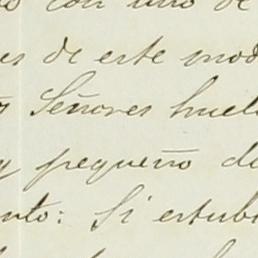 con uno de
es de este mod
Señores huel
y pequeño de
nto: Si estub